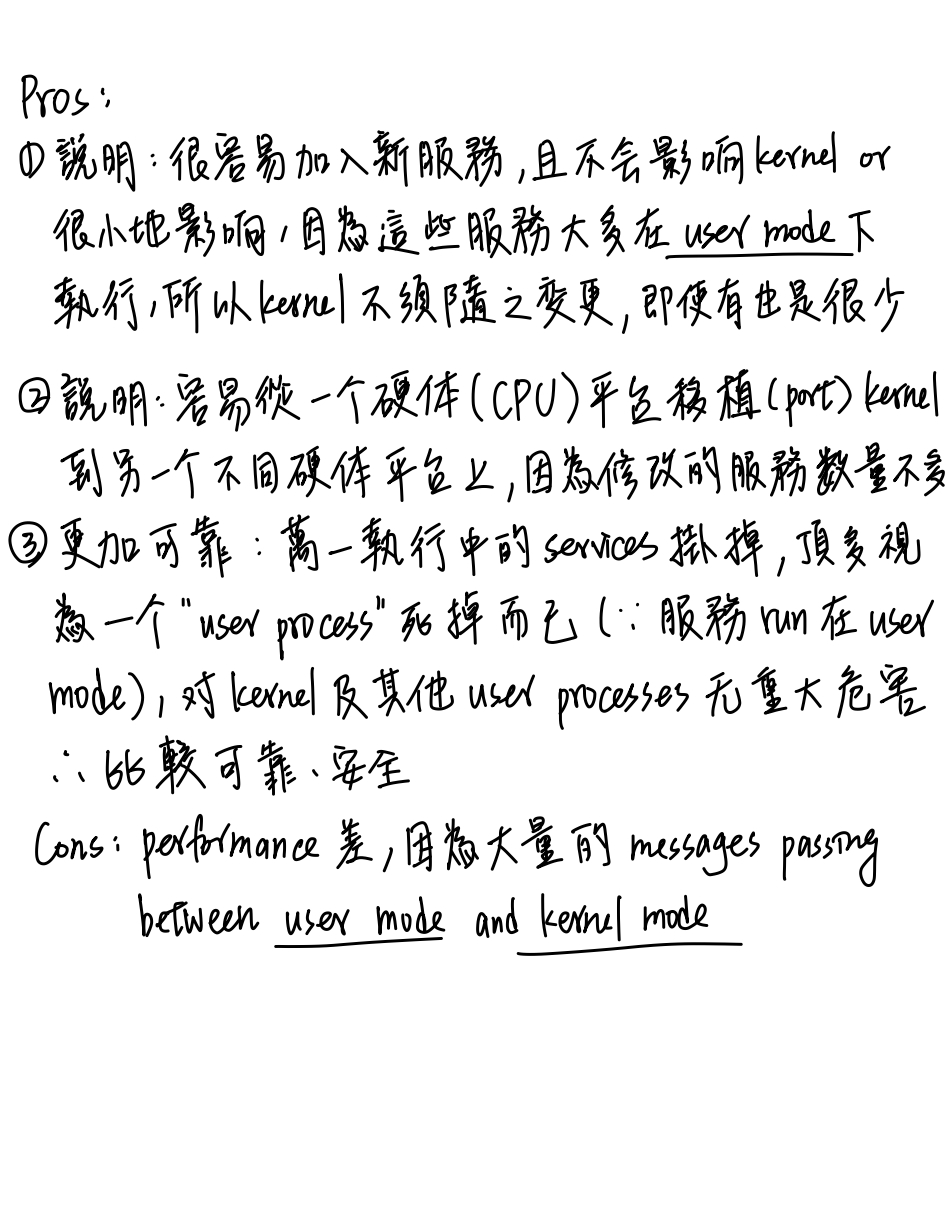 Pros:
① 説明:很容易加入新服務,且不会影响kernel or
很小地影响,因為這些服務大多在 user mode下
執行,所以kernel不須隨之变更,即使有也是很少
② 説明:容易從一个硬体(CPU)平台移植(port) kernel
到另一个不同硬体平台上,因為修改的服務数量不多
③ 更加可靠:萬一執行中的services掛掉,頂多視
為一个"user process"死掉而已 (∵服務run在user
mode),对kernel及其他user processes无重大危害
∴比較可靠、安全
Cons: performance差,因為大量的 messages passing
between user mode and kernel mode